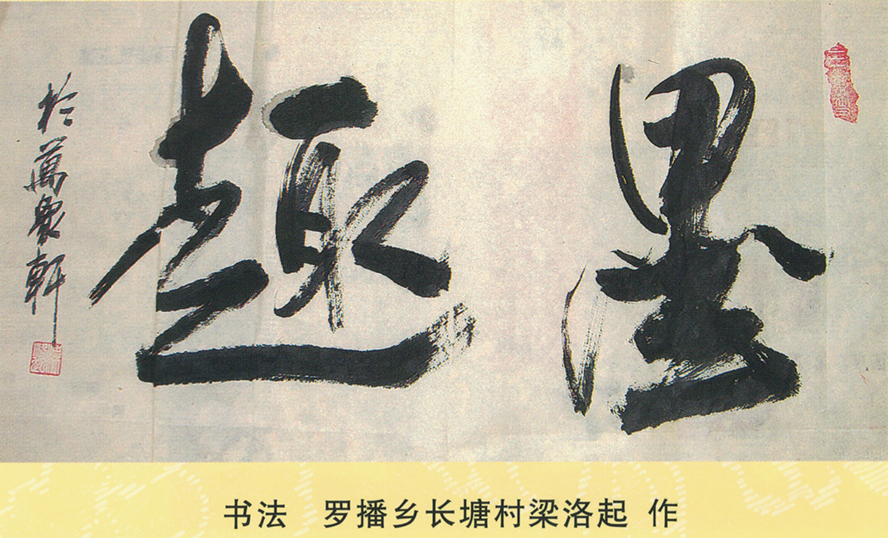 墨趣
於萬象軒
书法 罗播乡长塘村梁洛起 作